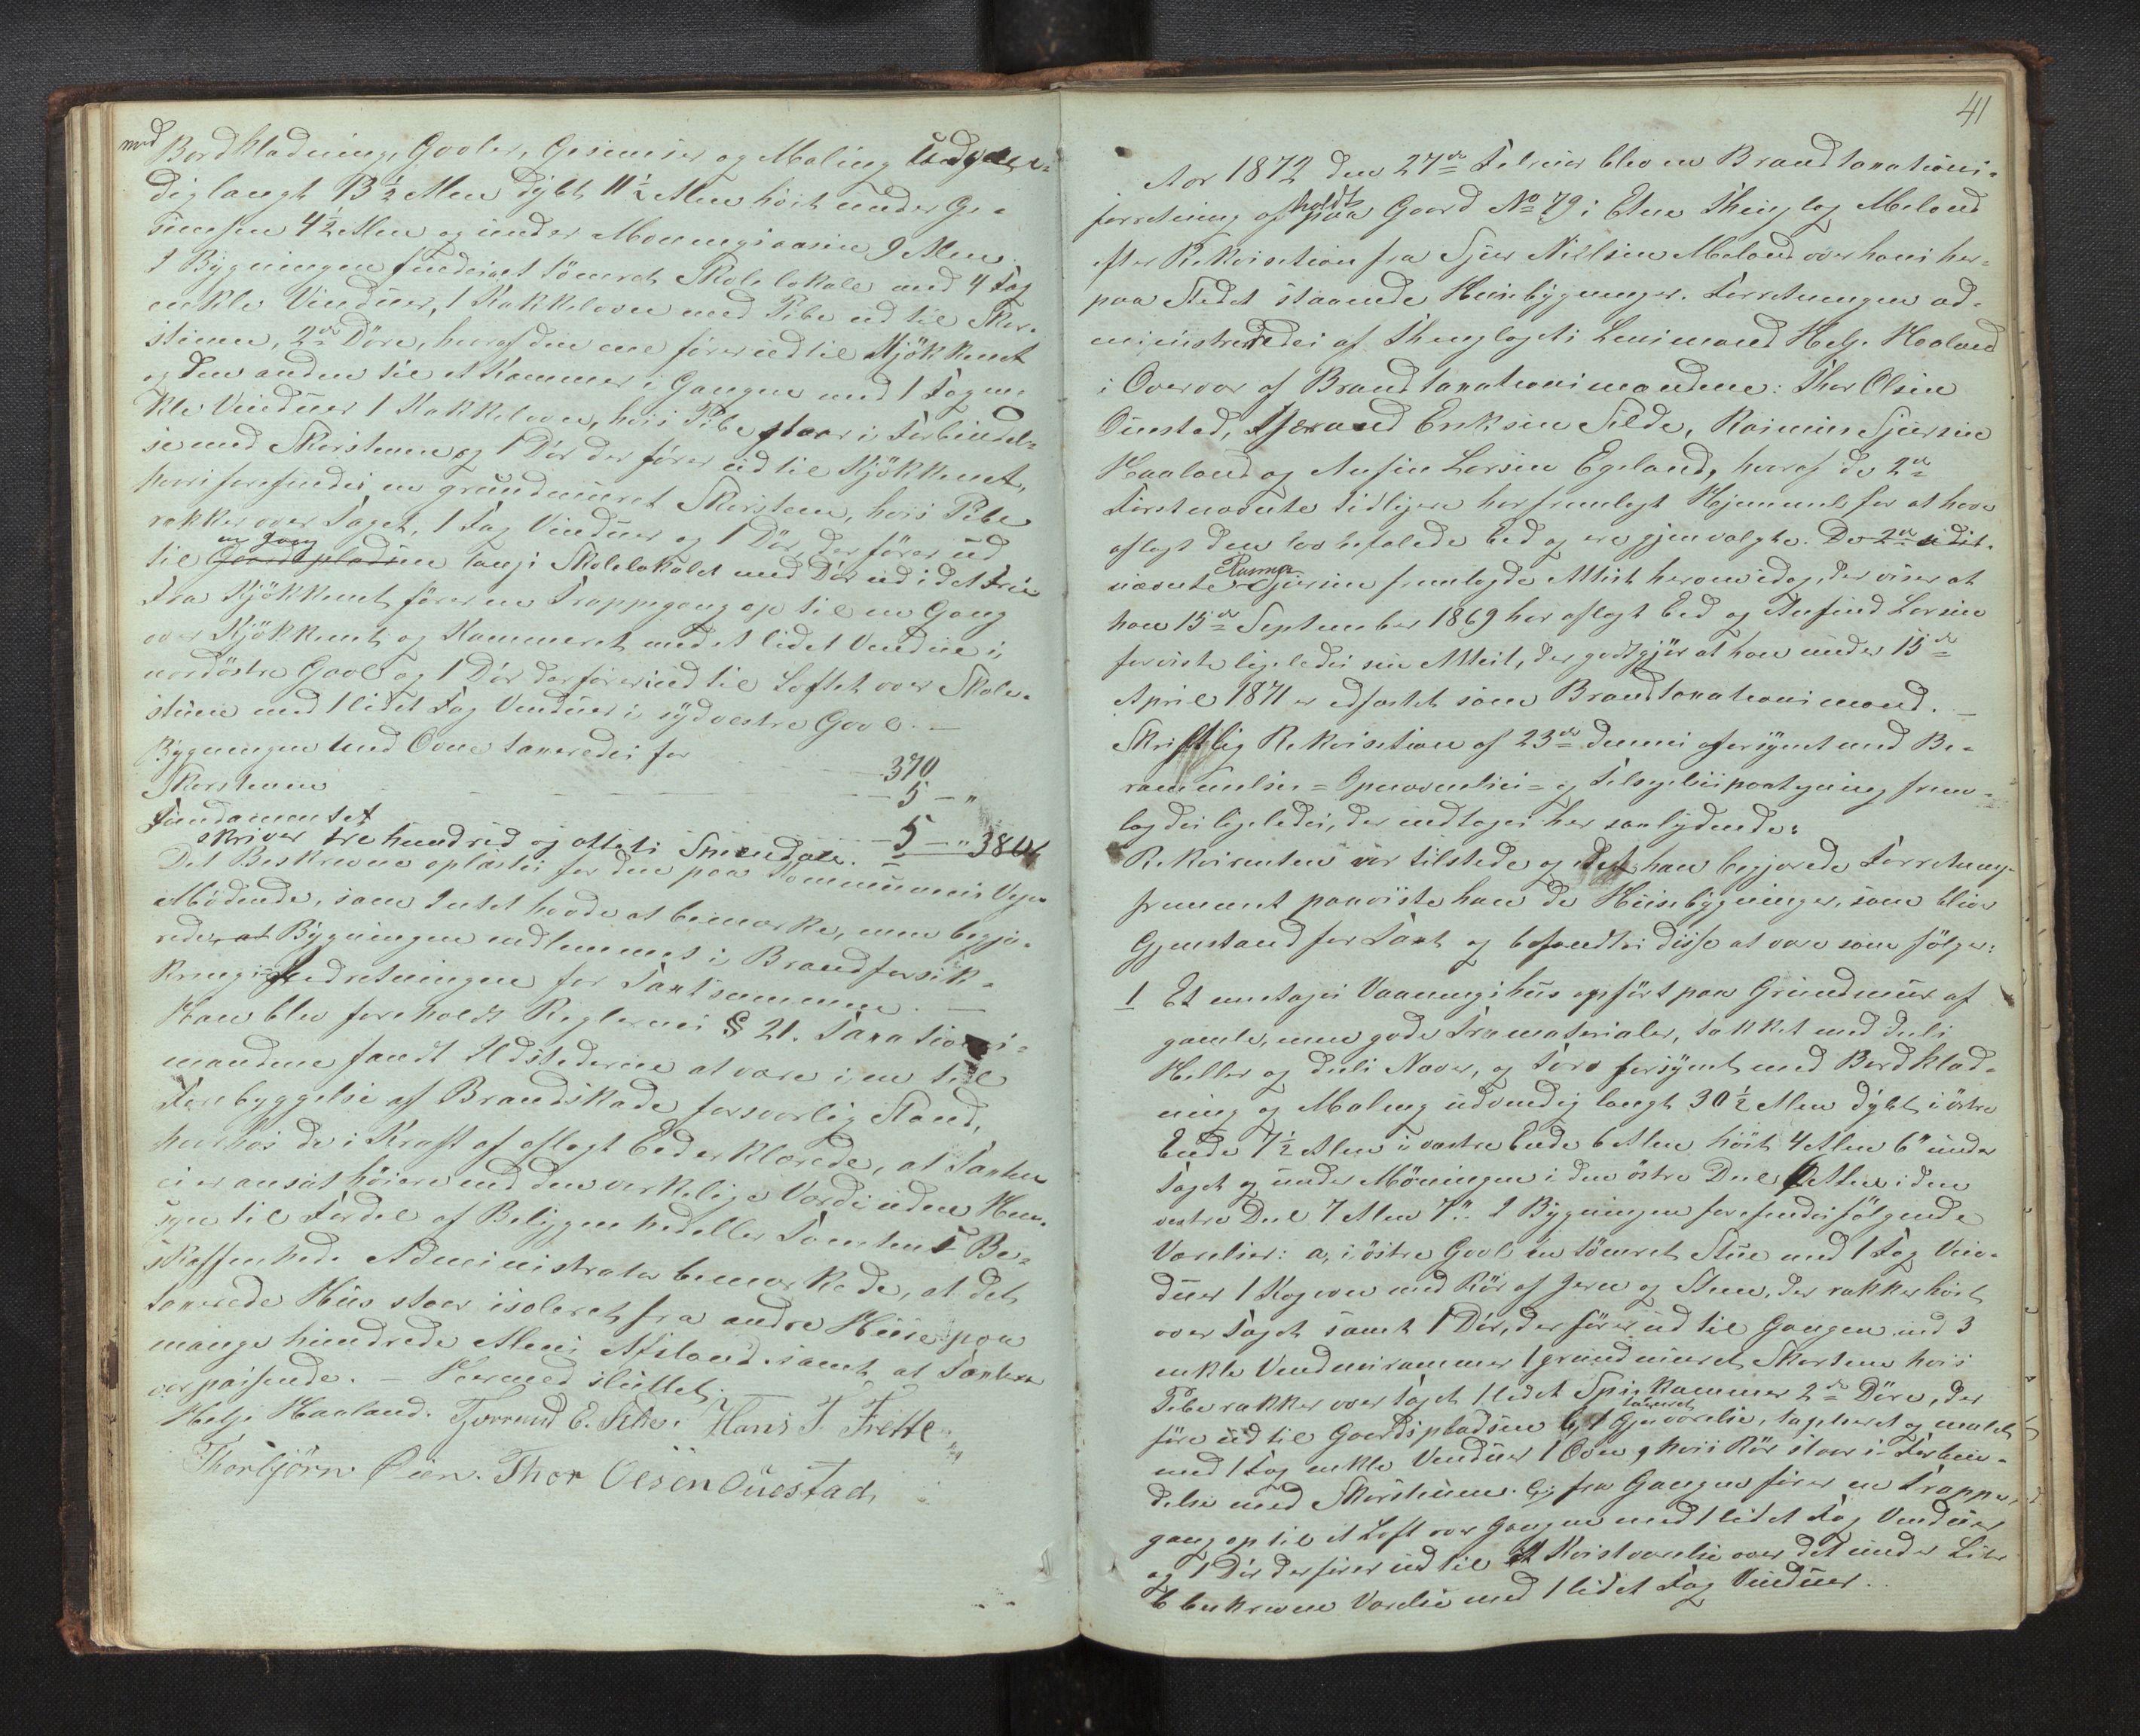 med Bordklædning, Gavler, Gesimser og Maling Udven-
dig langt 13 1/2 Alen dybt 11 1/2 Alen høit under Ge-
simsen 4 1/2 Alen og under Mønningsaasen 9 Alen.
I Bygningen findes et tømret Skolelokale med 4 Fag
enkle Vinduer, 1 Kakkelovn med Pibe ud til Skor-
stenen, 2de Døre, hvoraf den ene fører ud til Kjøkkenet
og den anden til et Kammer i Gangen med 1 Fag en-
kle Vinduer 1 Kakkelovn, hvis Pibe staar i Forbindel-
se med Skorstenen og 1 Dør der fører ud til Kjøkkenet,
hvori forefindes en grundmuret Skorsten, hvis Pibe
rækker over Taget, 1 Fag Vinduer og 1 Dør, der fører ud
en gang
til Gaardspladsen langs Skolelokalet med Dør ud i det Frie
Fra Kjøkkenet fører en Trappegang op til en Gang
over Kjøkkenet og Kammeret med et lidet Vindue i
nordøstre Gavl og 1 Dør der fører ind til Loftet over Skole-
stuen med 1 lidet Fag Vinduer i sydvestre Gavl. —
Bygningen med Ovne taxeredes for 370
Skorstenen 5 — "
Fundamentet 5 — " 380
skriver tre hundred og otteti Speciedaler.
Det Beskrevne oplæstes for den paa Kommunens Vegne
Mødende, som Intet havde at bemærke, men begjæ-
rede, at Bygningen indlemmes i Brandforsik-
krings-Indretningen for Taxtsummen. —
Han blev foreholdt Reglernes § 21. Taxations-
mændene fandt Ildstederne at være i en til
Forebyggelse af Brandskade forsvarlig Stand,
hvorhos de i Kraft af aflagt Eed erklærede, at Taxten
ei er ansat høiere end den virkelige Værdi uden Hen-
syn til Fordel af Beliggenhed eller Tomtens Be-
skaffenhed. Administrator bemærkede, at det
taxerede Hus staar isoleret fra andre Huse paa
mange hundrede Alens Afstand samt at Taxten
var passende. — Hermed sluttet.
Helje Haaland. Tjerand E. Silde. Hans T. Frette
Thorbjørn Øien. Thor Olsen Ouestad,
41
Aar 1872 den 27de Februar blev en Brandtaxations-
forretning afholdt paa Gaard No 79 i Etne Thinglag Meland
efter Rekvisition fra Sjur Nilsen Meland over hans her-
paa Stedet staaende Husebygninger. Forretningen ad-
ministreredes af Thinglagets Lensmand Helje Haaland
i Overvær af Brandtaxationsmændene: Thor Olsen
Ouestad, Tjerand Eriksen Silde, Rasmus Sjursen
Haaland og Anfin Larsen Egeland, hvoraf de 2de
Førstnævnte tidligere har fremlagt Hjemmel for at have
aflagt den lovbefalede Eed og ere gjenvalgte. De 2de sidst-
nævnte Rasmus Sjursen fremlagde Attest herom idag, der viser at
han 15de September 1869 har aflagt Eed og Anfind Larsen
foreviste ligeledes sin Attest, der godtgjør at han under 15de
April 1871 er edfæstet som Brandtaxationsmand. —
Skriftlig Rekvisition af 23de dennes forsynet med Be-
rammelses- Opnævnelses- og Tilsigelsespaategning frem-
lagdes ligeledes, der indtages her saalydende:
Rekvirenten var tilstede og det han begjærede Forretning-
fremmet paaviste han de Husebygninger, som blive
Gjenstand for Taxt og befandtes disse at være som følger:
1 Et eenetages Vaaningshus opført paa Grundmur af
gamle, men gode Træmaterialer, takket med deels
Heller og deels Næver, og Torv forsynet med Bordklæd-
ning og Maling udvendig langt 30 1/2 Alen dybt i østre
Ende 7 1/2 Alen i vestre Ende 6 Alen høit 4 Alen 6" under
Taget og under Mønningen i den østre Deel Alen i den
vestre Deel 7 Alen 7". I Bygningen forefindes følgende
Værelser: a, i østre Gavl en tømret Stue med 1 Fag Vin-
duer 1 Kogeovn med Rør af Jern og Sten, der rækker høit
over Taget samt 1 Dør, der fører ud til Gangen med 3
enkle Vinduesrammer 1 grundmuret Skorsten hvis
Pibe rækker over Taget 1 lidet Spiskammer 2de Døre, der
føre ud til Gaardspladsen b, 1 tømret Værelse, tapseret og malet
med 1 Fag enkle Vinduer 1 Ovn, hvis Rør staar i Forbin-
delse med Skorstenen. c, fra Gangen fører en Trappe-
gang op til et Loft over Gangen med 1 lidet Fag Vinduer
og 1 Dør der fører ind til et Kvistværelse over det under Litr
b beskrevne Værelse med 1 lidet Fag Vinduer.